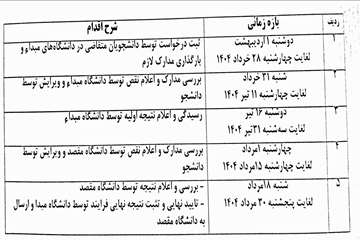 ردیف	بازه زمانی	شرح اقدام
۱	دوشنبه ۱ اردیبهشت	ثبت درخواست توسط دانشجویان متقاضی در دانشگاه‌های مبداء و
لغایت چهارشنبه ۲۸ خرداد ۱۴۰۴	بارگذاری مدارک لازم
۲	شنبه ۳۱ خرداد	بررسی مدارک و اعلام نقص توسط دانشگاه مبداء و ویرایش توسط
لغایت چهارشنبه ۱۱ تیر ۱۴۰۴	دانشجو
۳	دوشنبه ۱۶ تیر	رسیدگی و اعلام نتیجه اولیه توسط دانشگاه مبداء
لغایت سه‌شنبه ۳۱تیر ۱۴۰۴
۴	چهارشنبه ۱مرداد	بررسی مدارک و اعلام نقص توسط دانشگاه مقصد و ویرایش توسط
لغایت چهارشنبه ۱۵مرداد ۱۴۰۴	دانشجو
۵	شنبه ۱۸مرداد	- بررسی و اعلام نتیجه توسط دانشگاه مقصد
لغایت پنجشنبه ۳۰ مرداد ۱۴۰۴	- تایید نهایی و تثبت نتیجه نهایی فرایند توسط دانشگاه مبدا و ارسال
به دانشگاه مقصد